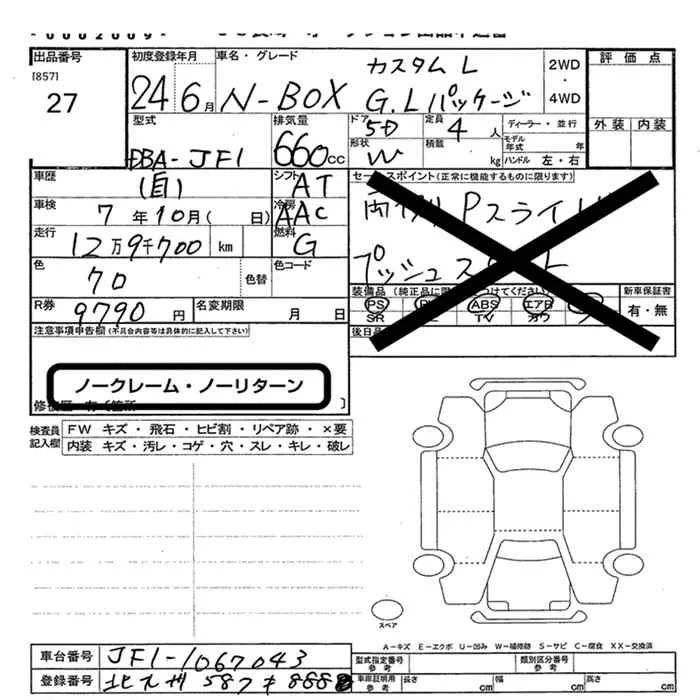 出品番号 初度登録年月 車名・グレード 評価点
[857]
27
24 6月 N-BOX カスタム L G.Lパッケージ 2WD・4WD
外装 内装
型式 排気量 ドア 定員 ディーラー・並行
DBA-JF1 660cc 5D 4人 モデル年式 年
形状 積載 kg ハンドル 左・右
W
車歴 シフト セールスポイント(正常に機能するものに限ります)
(自) AT
車検 7年10月( 日) 冷房 AAC
両側Pスライド
走行 12万9千700 km 燃料 G
プッシュスタート
色 70 色替 色コード
装備品 (純正品に限り○をつけてください) 新車保証書
PS ABS エアB 有・無
SR TV カワ
R券 9790円 名変期限 月 日
後日品
注意事項申告欄(不具合内容等は具体的に記入して下さい)
ノークレーム・ノーリターン
修復歴 有〔箇所 〕
検査員記入欄 FW キズ・飛石・ヒビ割・リペア跡・×要
内装 キズ・汚レ・コゲ・穴・スレ・キレ・破レ
スペア
A-キズ E-エクボ U-凹み W-補修跡 S-サビ C-腐食 XX-交換済
車台番号 JF1-1067043
型式指定番号参考 類別区分番号参考
登録番号 北九州 587 888
車庫証明用参考 長さ cm 幅 cm 高さ cm